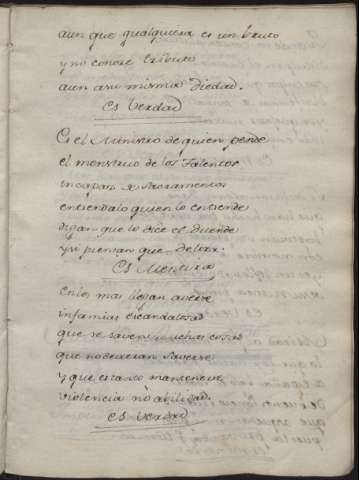 aun que qualquiera es un bruto
y no conose tributo
aun asu misma Piedad.
es verdad
Es el Ministro de quien pende
el monstruo de los talentos
incapas Sacramentos
entiendalo quien lo entiende
digan que lo dice el duende
y si piensan que
es Mentira
En los mas llegan averse
infamias escandalosas
que se saven muchas cosas
que no devieran saverse
y que esta no mantenerse
violencia no avilidad.
es verdad